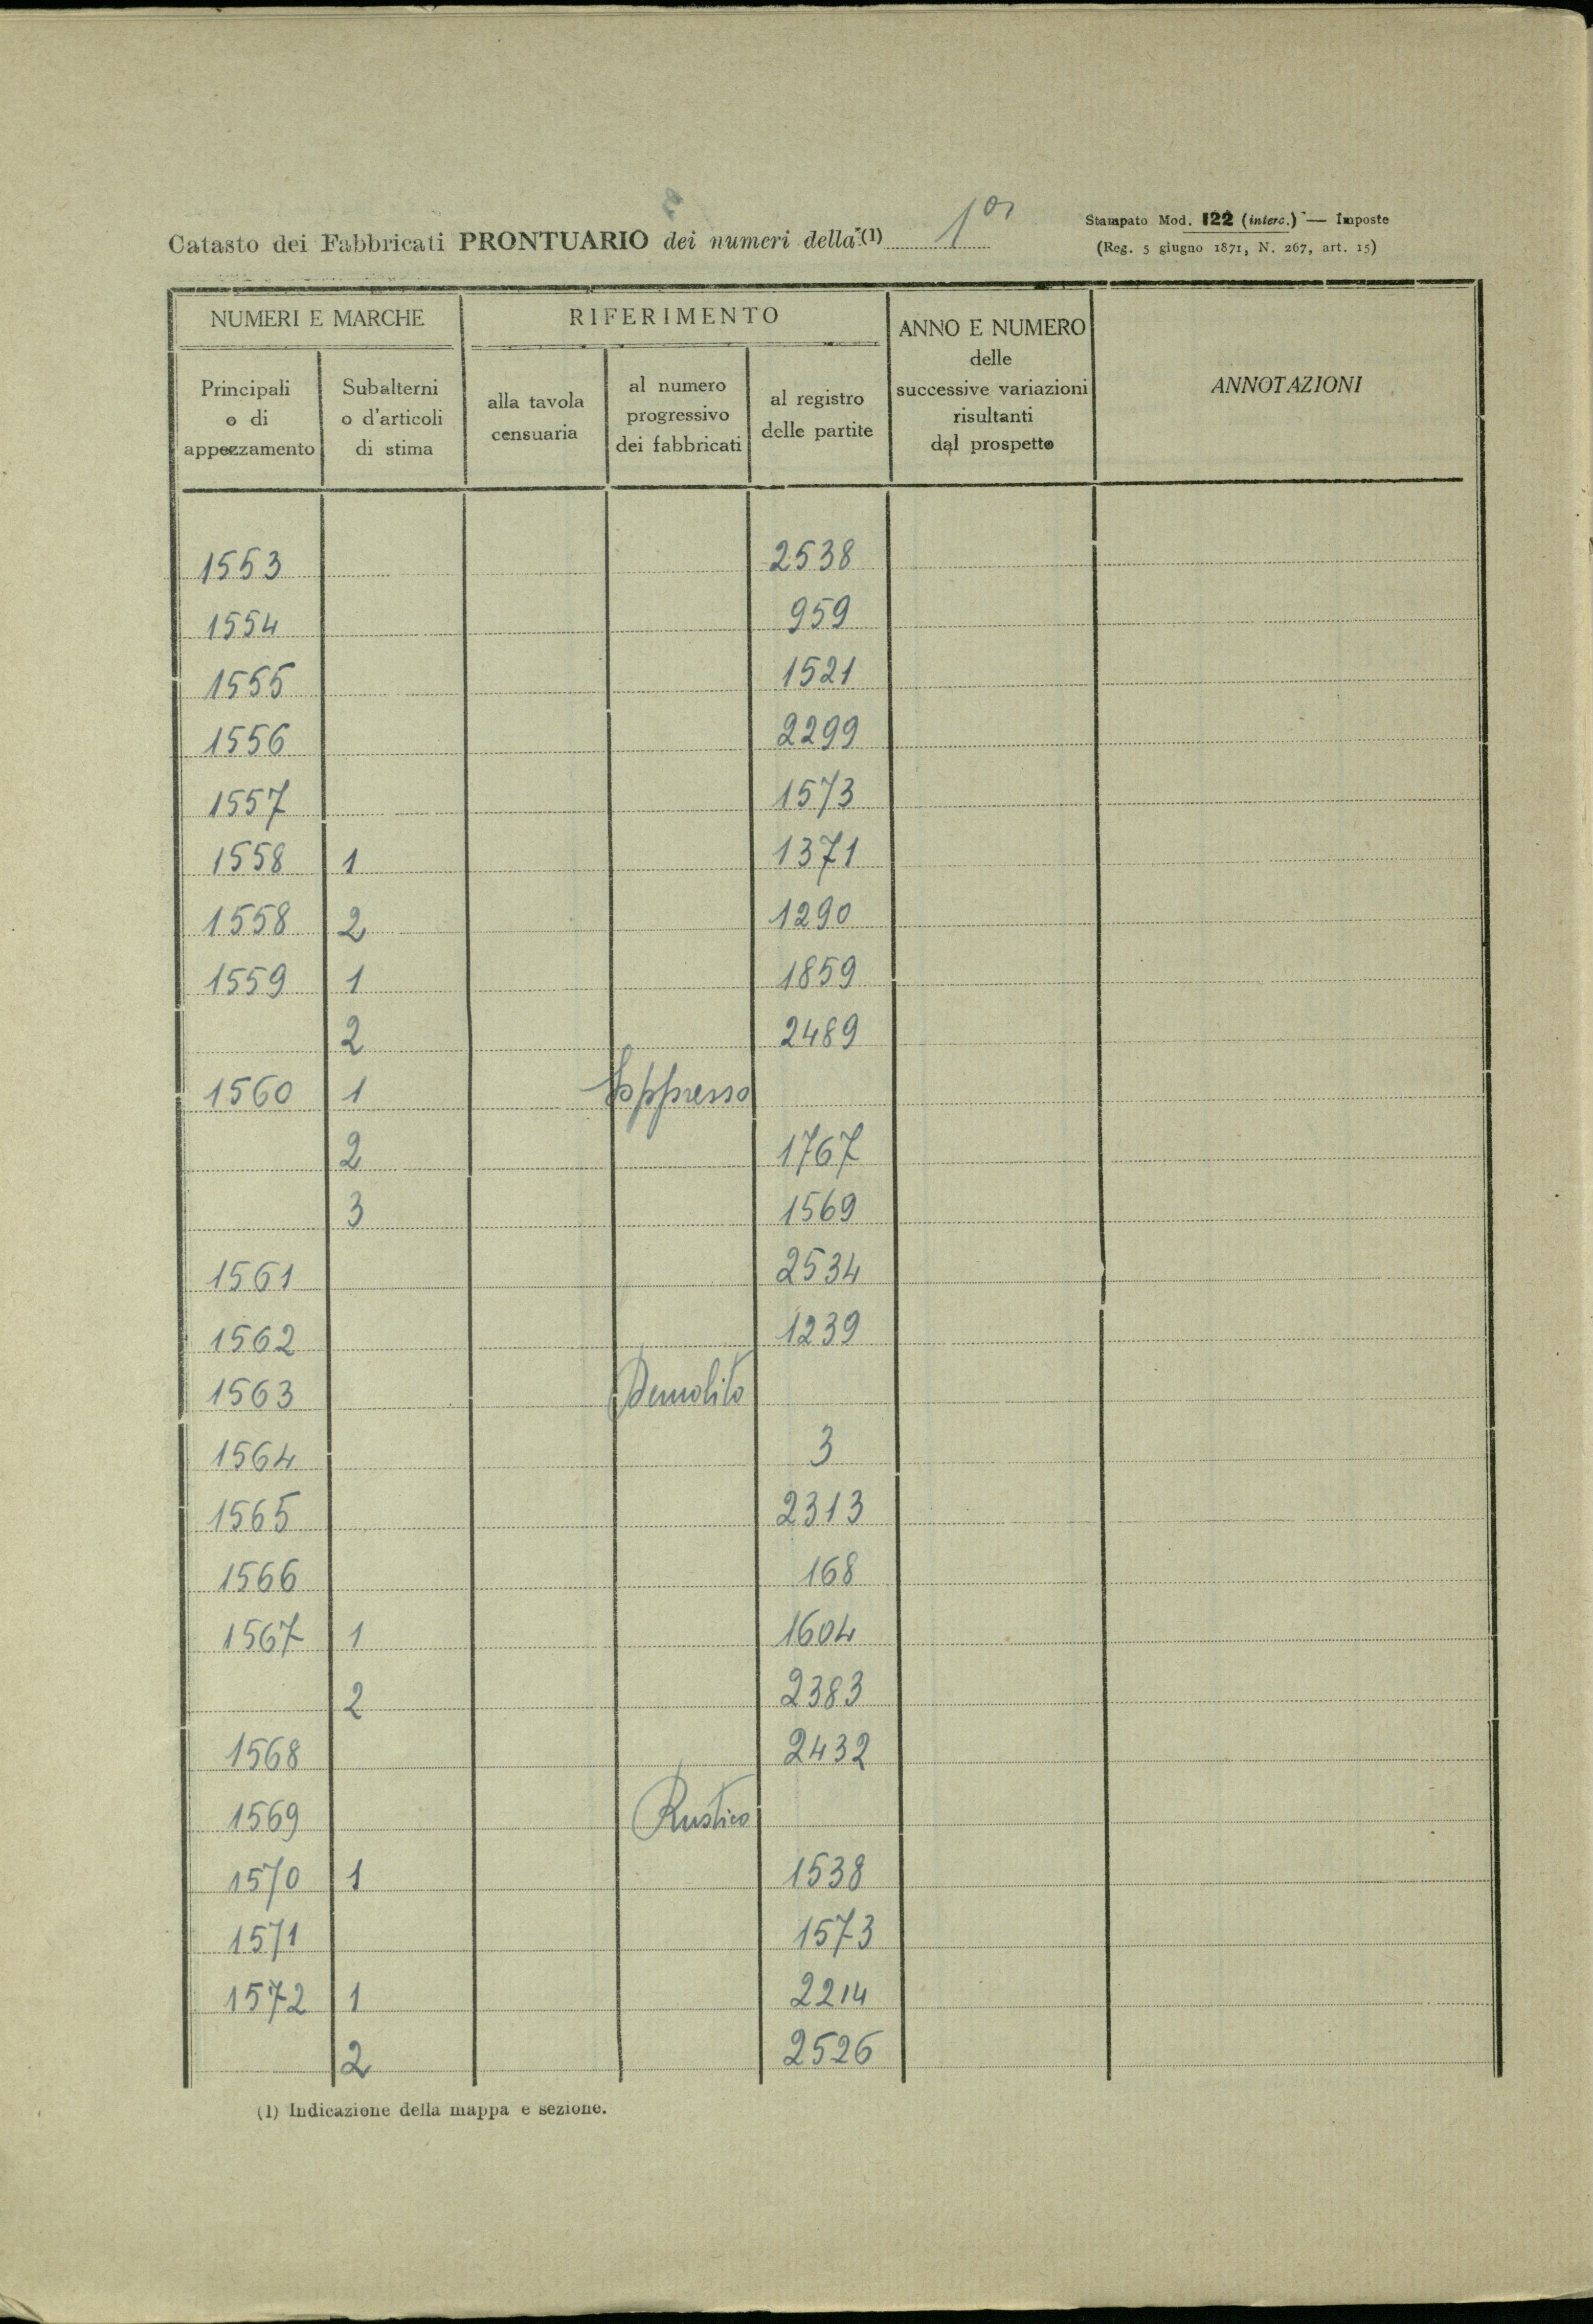 Catasto dei Fabbricati PRONTUARIO dei numeri della (1)
Stampato Mod. 122 (interc.) — Imposte
(Reg. 5 giugno 1871, N. 267, art. 15)
NUMERI E MARCHE
RIFERIMENTO
ANNO E NUMERO
delle
successive variazioni
risultanti
dal prospetto
ANNOTAZIONI
Principali
o di
appezzamento
Subalterni
o d'articoli
di stima
alla tavola
censuaria
al numero
progressivo
dei fabbricati
al registro
delle partite
1553 2538
1554 959
1555 1521
1556 2299
1557 1573
1558 1 1371
1558 2 1290
1559 1 1859
2 2489
1560 1 Soppresso
2 1767
3 1569
1561 2534
1562 1239
1563 Demolito
1564 3
1565 2313
1566 168
1567 1 1604
2 2383
1568 2432
1569 Rustico
1570 1 1538
1571 1573
1572 1 2214
2 2526
(1) Indicazione della mappa e sezione.